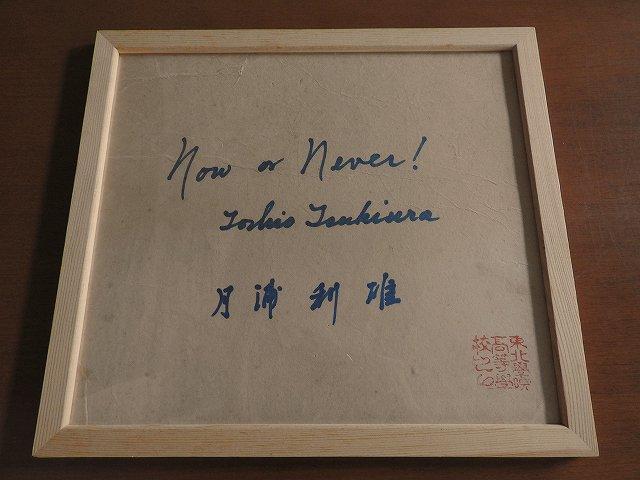 Now or Never!
Toshio Tsukiura
月浦 利雄
東北學院
高等學
校之印